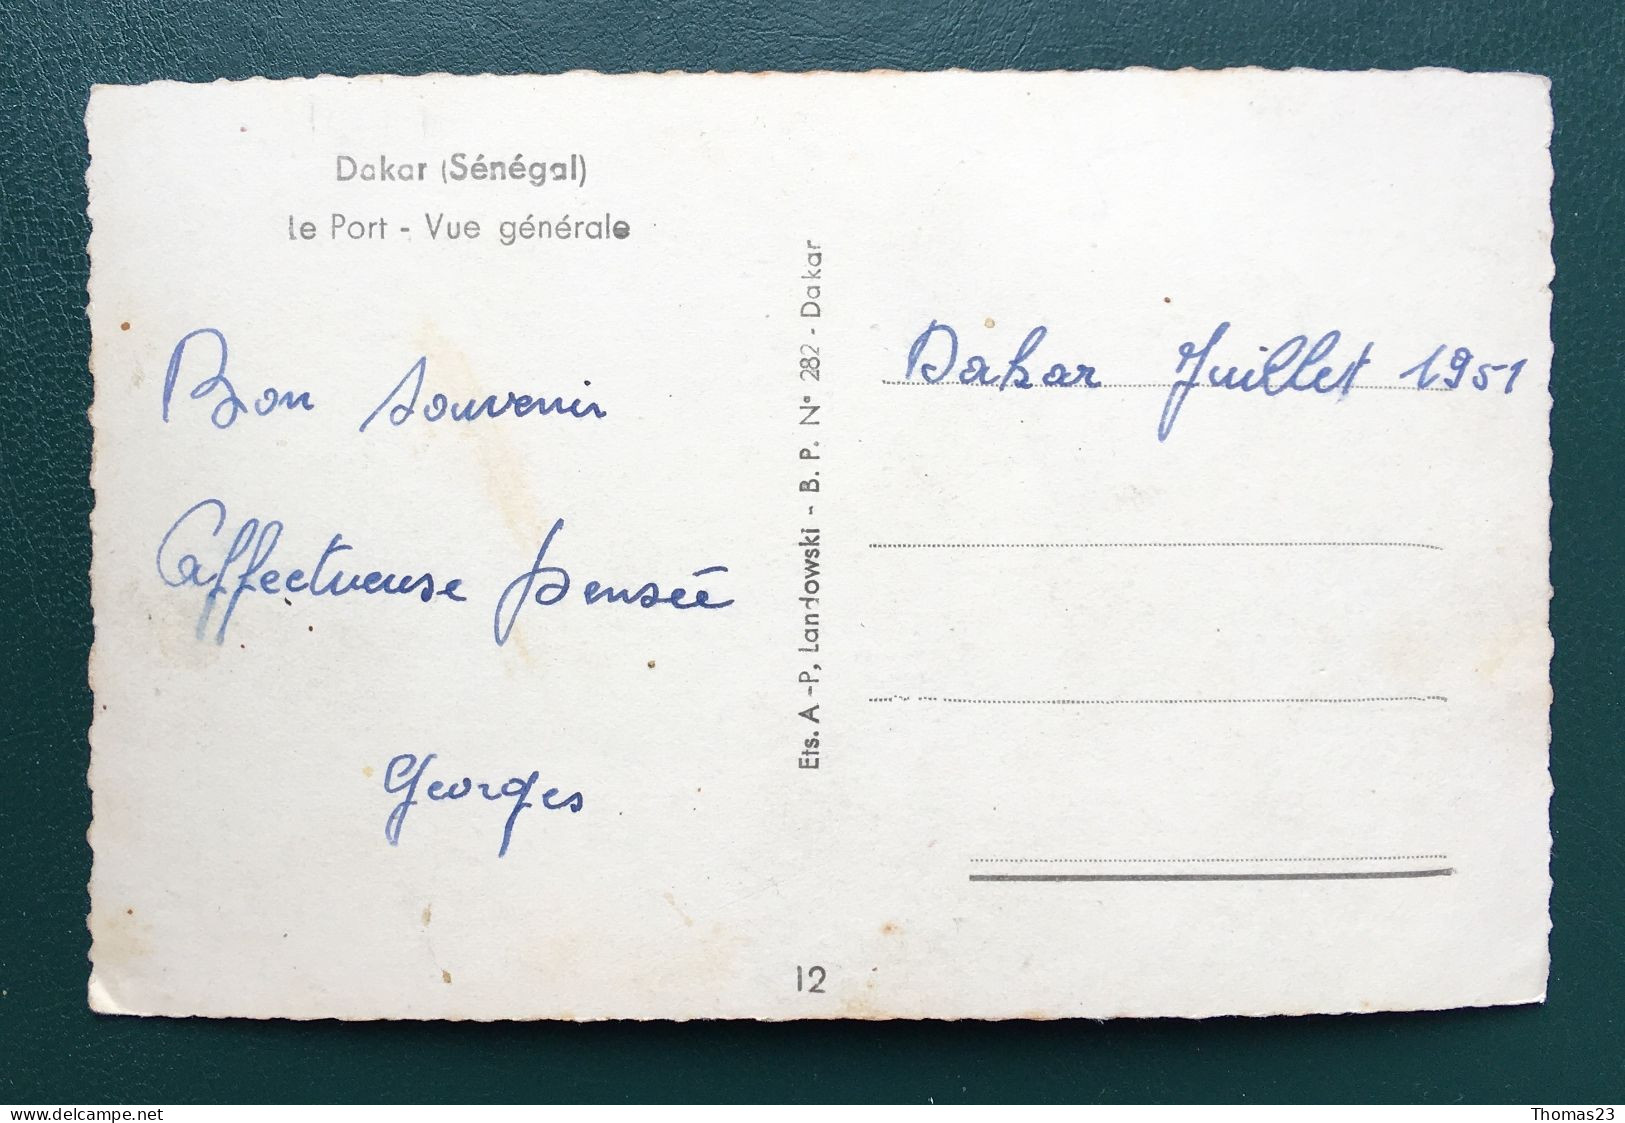 Dakar (Sénégal)
Le Port - Vue générale
Bon souvenir
Affectueuse pensée
Georges
Ets. A-P, Landowski - B. P. N° 282 - Dakar
12
Dakar Juillet 1951
www.delcampe.net
Thomas23